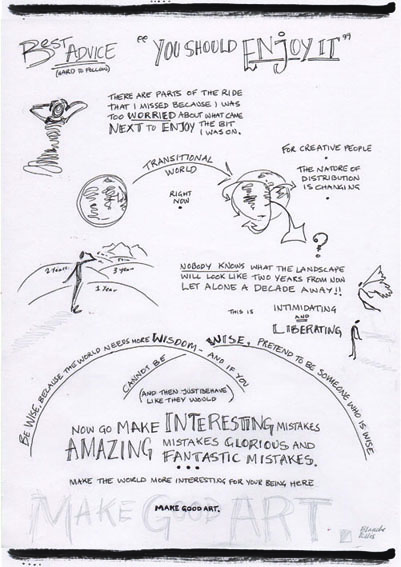 BEST ADVICE
(HARD TO FOLLOW)
"YOU SHOULD ENJOY IT"
THERE ARE PARTS OF THE RIDE
THAT I MISSED BECAUSE I WAS
TOO WORRIED ABOUT WHAT CAME
NEXT TO ENJOY THE BIT
I WAS ON.
TRANSITIONAL
WORLD
RIGHT
NOW
FOR CREATIVE PEOPLE
THE NATURE OF
DISTRIBUTION
IS CHANGING
?
2 YEAR
3 YEAR
1 YEAR
NOBODY KNOWS WHAT THE LANDSCAPE
WILL LOOK LIKE TWO YEARS FROM NOW
LET ALONE A DECADE AWAY!!
THIS IS
INTIMIDATING
AND
LIBERATING
BE WISE, BECAUSE THE WORLD NEEDS MORE WISDOM - AND IF YOU
CANNOT BE
WISE, PRETEND TO BE SOMEONE WHO IS WISE
(AND THEN JUST BEHAVE
LIKE THEY WOULD)
NOW GO MAKE INTERESTING MISTAKES
AMAZING MISTAKES GLORIOUS AND
FANTASTIC MISTAKES.
...
MAKE THE WORLD MORE INTERESTING FOR YOUR BEING HERE
MAKE GOOD ART.
MAKE GOOD ART.